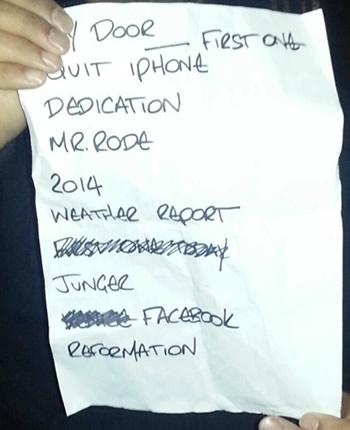 DOOR ___ FIRST ONE
QUIT IPHONE
DEDICATION
MR. RODE
2014
WEATHER REPORT
JUNGER
FACEBOOK
REFORMATION